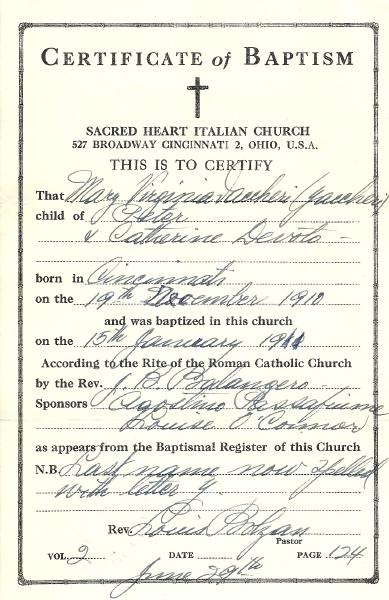 CERTIFICATE of BAPTISM
SACRED HEART ITALIAN CHURCH
527 BROADWAY CINCINNATI 2, OHIO, U.S.A.
THIS IS TO CERTIFY
That Mary Virginia Iaccheri (Yaccheri)
child of Peter
& Catherine Devoto
born in Cincinnati
on the 19th December 1910
and was baptized in this church
on the 15th January 1911
According to the Rite of the Roman Catholic Church
by the Rev. J. B. Balangero
Sponsors Agostino
Louise O'Connor
as appears from the Baptismal Register of this Church
N.B. Last name now spelled
with letter Y.
Rev. Louis Bolzan
Pastor
VOL 2 DATE PAGE 124
June 29th